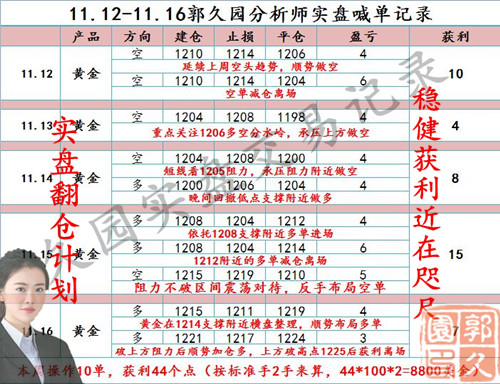 11.12-11.16郭久园分析师实盘喊单记录
产品 方向 建仓 止损 平仓 盈亏 获利
11.12 黄金 10
空 1210 1214 1206 4
延续上周空头趋势，顺势做空
空 1210 1214 1204
空单减仓离场
11.13 黄金 4
空 1204 1208 1198 4
重点关注1206多空分水岭，承压上方做空
11.14 黄金 8
空 1204 1208 1200 4
短线看1205阻力，承压阻力附近做空
多 1200 1206 1204 4
晚间回撤低点支撑附近做多
11.15 黄金 15
多 1208 1204 1212 4
依托1208支撑附近多单进场
多 1208 1204 1214 6
1212附近的多单减仓离场
空 1215 1219 1210 5
阻力不破区间震荡对待，反手布局空单
11.16 黄金 7
多 1215 1211 1219 4
黄金在1214支撑附近横盘整理，顺势布局多单
多 1221 1217 1224 3
破上方阻力后顺势加仓多，上方破高点1225后获利离场
本周操作10单，获利44个点（按标准手2手来算，44*100*2=8800美金）
实盘翻仓计划
稳健获利近在咫尺
久园实盘交易记录
郭久园